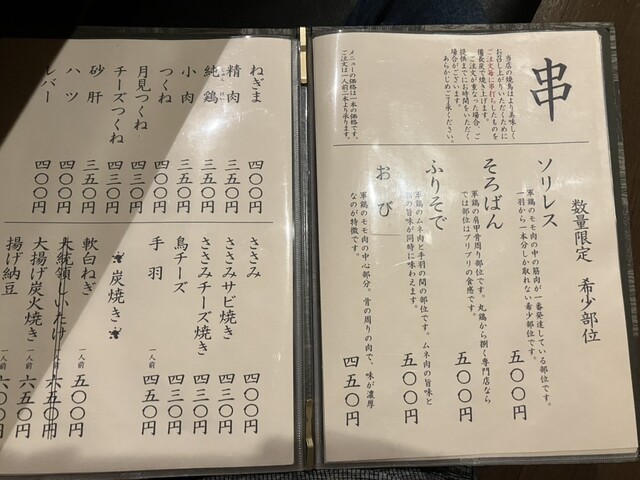 串
当店の焼鳥はより美味しく
お召し上がりいただくために
ご注文毎に串打ちしたものを
備長炭で焼き上げます。
ご注文が重なった場合、ご
提供までにお時間をいただく
場合がございます。
あらかじめご了承ください。
メニューの価格は一本の価格です。
ご注文は一人前二本より承ります。
数量限定 希少部位
ソリレス
軍鶏のモモ肉の中の筋肉が一番発達している部位です。
一羽から一本分しか取れない希少部位です。
五〇〇円
そろばん
軍鶏の肩甲骨周り部位です。丸鶏から捌く専門店なら
では部位はプリプリの食感です。
五〇〇円
ふりそで
軍鶏のムネ肉と手羽の間の部位です。ムネ肉の旨味と
の旨味が同時に味わえます。
五〇〇円
おび
軍鶏のモモ肉の中心部分。骨の周りの肉で、味が濃厚
なのが特徴です。
四五〇円
ねぎま 四〇〇円
精肉 三五〇円
純鶏 三五〇円
小肉 三五〇円
つくね 四〇〇円
月見つくね 四三〇円
チーズつくね 四三〇円
砂肝 三五〇円
ハツ 四〇〇円
レバー 四〇〇円
ささみ 四〇〇円
ささみサビ焼き 四三〇円
ささみチーズ焼き 四三〇円
鳥チーズ 四三〇円
手羽 一人前 四五〇円
炭焼き
軟白ねぎ 一人前 五〇〇円
大統領しいたけ 一人前 六五〇円
大揚げ炭火焼き 一人前 六五〇円
揚げ納豆 一人前 六〇〇円